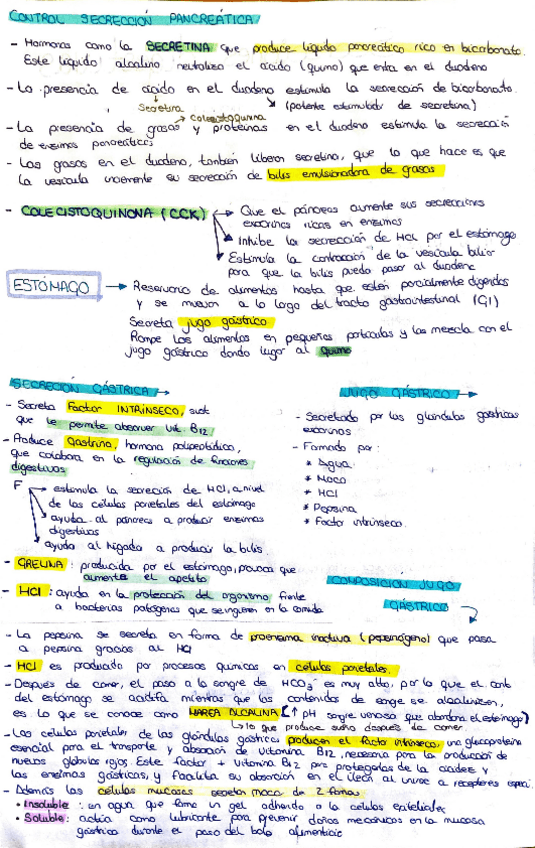 CONTROL SECRECCIÓN PANCREÁTICA
- Hormonas como la SECRETINA que produce líquido pancreático rico en bicarbonato.
Este líquido alcalino neutraliza el ácido (quimo) que esta en el duodeno
- La presencia de ácido en el duodeno estimula la secreción de bicarbonato.
Secretina (potente estimulador de secretina)
colecistoquinina
- La presencia de grasas y proteínas en el duodeno estimula la secreción
de enzimas pancreáticas
- Las grasas en el duodeno, tambien liberan secretina, que lo que hace es que
la vesícula incremente su secreción de bilis emulsionadora de grasas
- COLECISTOQUINONA (CCK) → Que el páncreas aumente sus secreciones
exocrinas ricas en enzimas
Inhibe la secreción de HCL por el estómago
Estimula la contracción de la vesícula biliar
para que la bilis pueda pasar al duodeno
ESTÓMAGO → Reservorio de alimentos hasta que estén parcialmente digeridos
y se muevan a lo largo del tracto gastrointestinal (GI)
Secreta jugo gástrico
Rompe los alimentos en pequeñas partículas y las mezcla con el
jugo gástrico dando lugar al quimo
SECRECIÓN GÁSTRICA →
- Secreta Factor INTRÍNSECO, sust
que le permite absorver vit. B12
- Produce gastrina, hormona polipeptídica,
que colabora en la regulación de funciones
digestivas
F → estimula la secreción de HCl, a nivel
de las células parietales del estómago
ayuda al páncreas a producir enzimas
digestivas
ayuda al hígado a producir la bilis.
- GRELINA: producida por el estómago, provoca que
aumente el apetito
- HCl: ayuda en la protección del organismo frente
a bacterias patógenas que se ingieren en la comida
JUGO GÁSTRICO
- Secretado por las glándulas gástricas
exocrinas
- Formado por:
* Agua
* Moco
* HCl
* Pepsina
* Factor intrínseco.
COMPOSICIÓN JUGO
GÁSTRICO
- La pepsina se secreta en forma de proenzima inactiva (pepsinógeno) que pasa
a pepsina gracias al HCl
- HCl es producido por procesos químicos en células parietales.
- Después de comer, el paso a la sangre de HCO3⁻ es muy alto, por lo que el cont
del estómago se acidifica mientras que los contenidos de sangre se alcalinizan,
es lo que se conoce como MAREA ALCALINA (↑ pH sangre venosa que abandona el estómago)
lo que produce sueño después de comer.
- Las células parietales de las glándulas gástricas producen el factor intrínseco, una glucoproteína
esencial para el transporte y absorción de vitamina B12, necesaria para la producción de
nuevos glóbulos rojos. Este factor + vitamina B12 para protegerlos de la acidez y
las enzimas gástricas, y facilita su absorción en el íleon al unirse a receptores especí.
- Además las células mucosas secretan moco de 2 formas
• Insoluble: en agua que forma un gel adherido a la células epiteliales
• Soluble: actúa como lubricante para prevenir daños mecánicos en la mucosa
gástrica durante el paso del bolo alimenticio